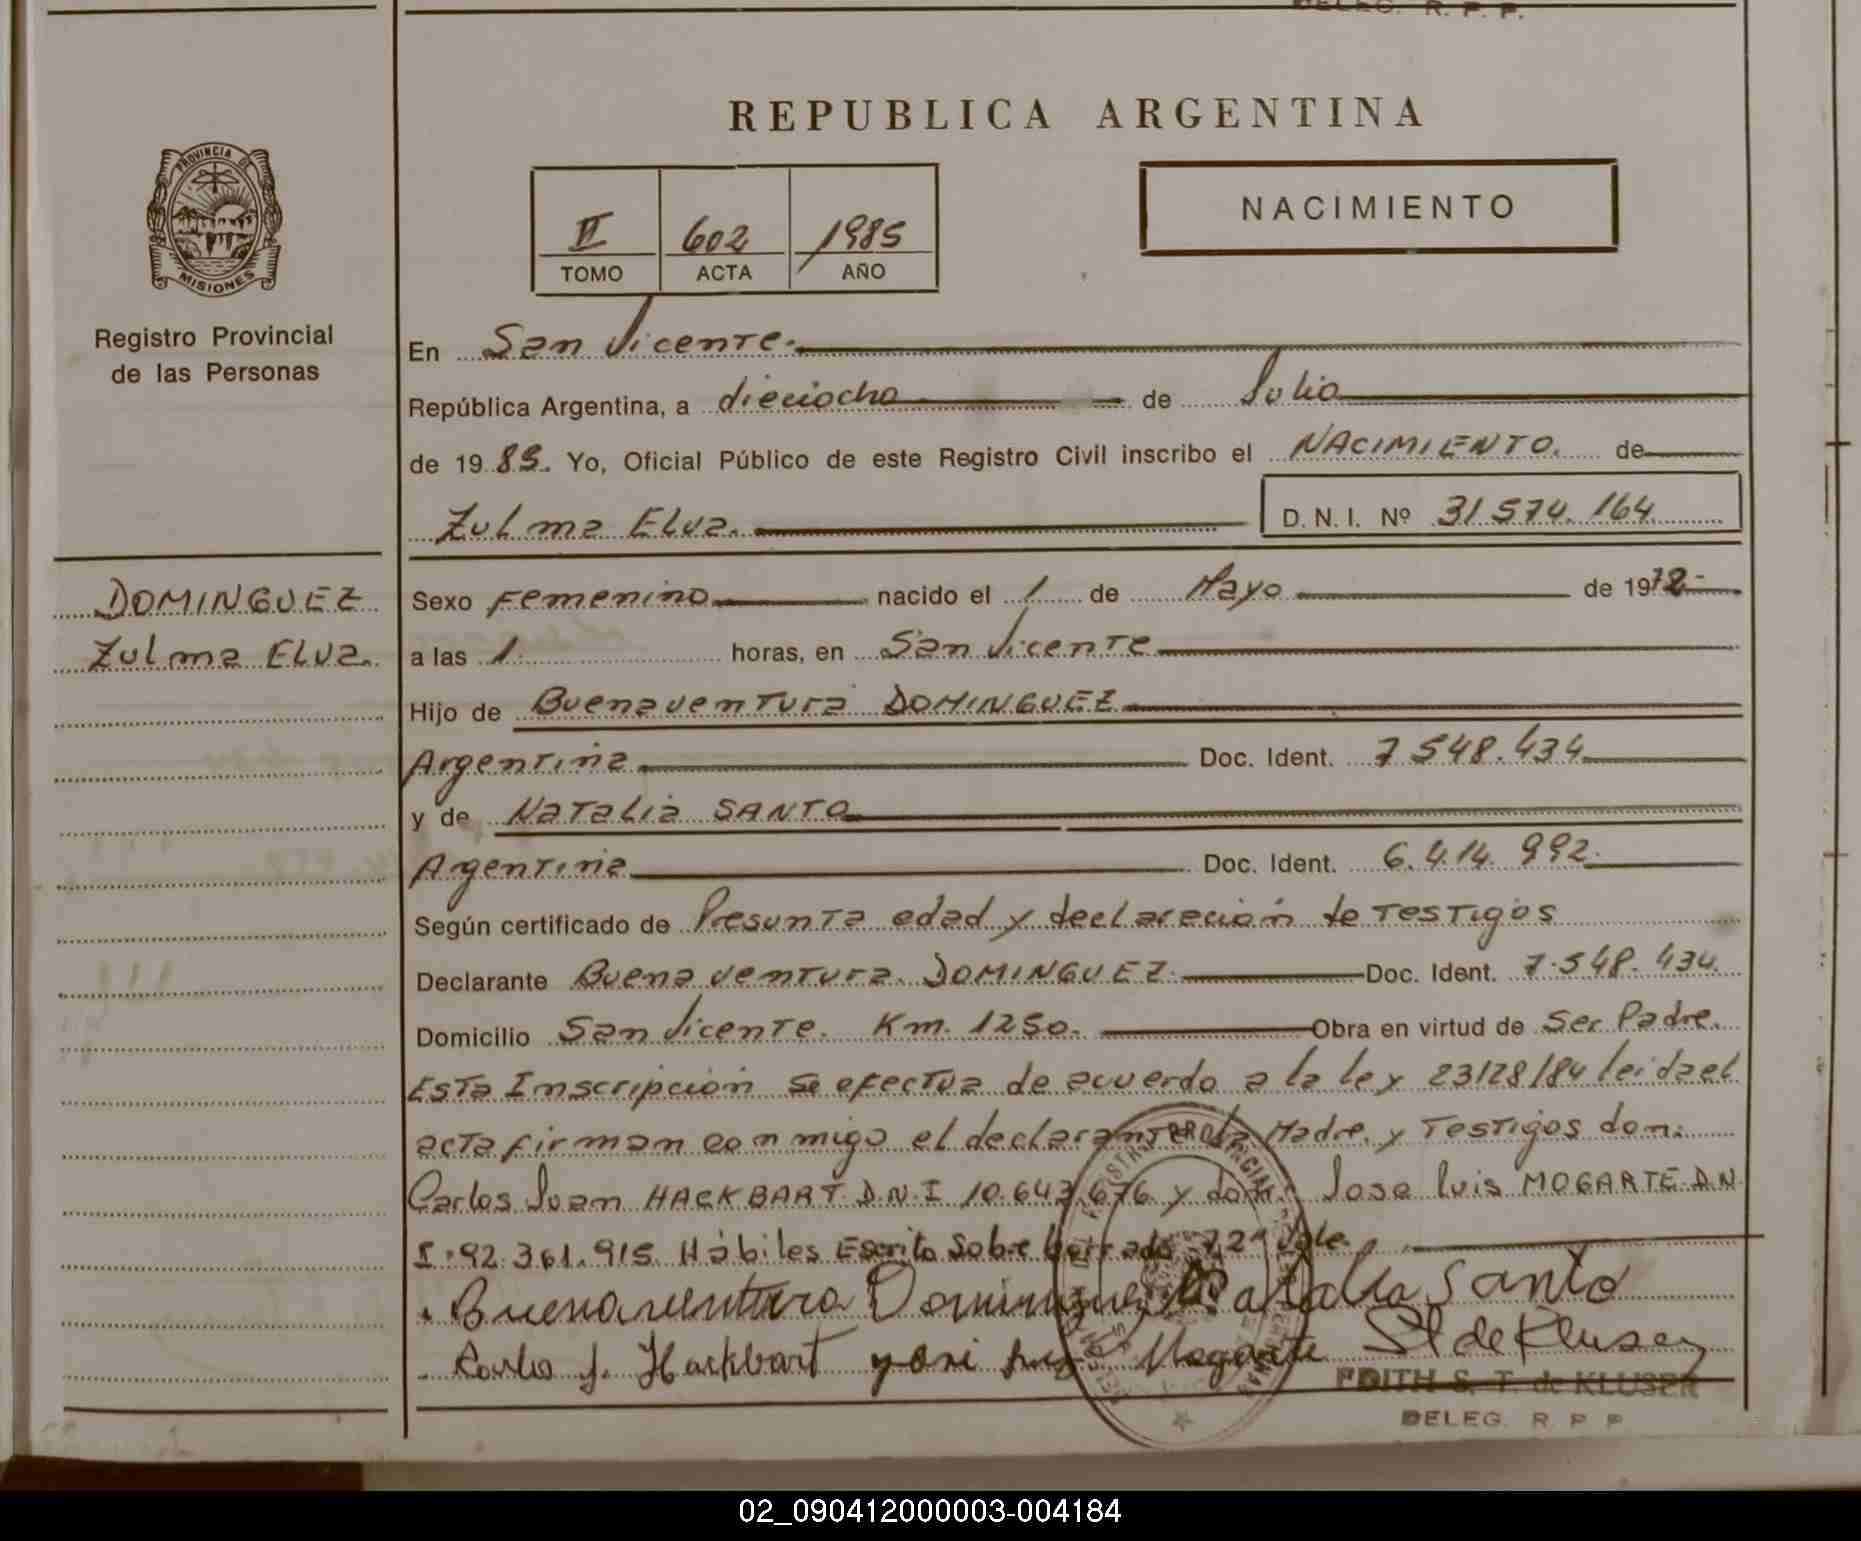 DELEG. R. P. P.
REPUBLICA ARGENTINA
PROVINCIA DE
MISIONES
Registro Provincial
de las Personas
II 602 1985
TOMO ACTA AÑO
NACIMIENTO
En San Vicente.
República Argentina, a dieciocho de Julio
de 1985. Yo, Oficial Público de este Registro Civil inscribo el NACIMIENTO. de
Zulma Elva. D. N. I. Nº 31 574. 164
DOMINGUEZ
Zulma Elva.
Sexo Femenino nacido el 1 de Mayo de 1972-
a las 1. horas, en San Vicente
Hijo de Buenaventura DOMINGUEZ
Argentina Doc. Ident. 7 548.434
y de Natalia SANTO
Argentina Doc. Ident. 6.414.992.
Según certificado de Presunta edad y declaración de Testigos
Declarante Buenaventura. DOMINGUEZ. Doc. Ident. 7.548.434.
Domicilio San Vicente. Km. 1250. Obra en virtud de Ser Padre.
Esta Inscripción se efectua de acuerdo a la ley 23128/84 leida el
acta firman conmigo el declarante la Madre. y Testigos don:
Carlos Juan HACKBART D.N.I 10.643.676 y don: Jose Luis MOGARTE D.N
I.92.361.915 Hábiles Escrito Sobre borrado "72" Vale.
Buenaventura Dominguez Natalia Santo
Carlos J. Hackbart Mogarte St de Kluser
EDITH S. T. de KLUSER
DELEG. R P P
02_090412000003-004184